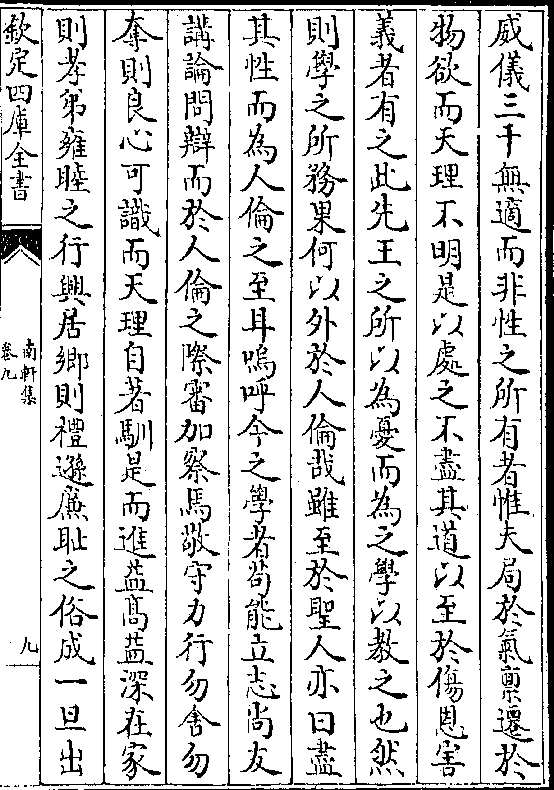 威儀三千無適而非性之所有者惟夫局於氣禀遷於
物欲而天理不明是以處之不盡其道以至於傷恩害
義者有之此先王之所以為憂而為之學以教之也然
則學之所務果何以外於人倫哉雖至於聖人亦曰盡
其性而為人倫之至耳嗚呼今之學者苟能立志尚友
講論問辯而於人倫之際審加察焉敬守力行勿舍勿
奪則良心可識而天理自著馴是而進益髙益深在家
則孝弟雍睦之行興居鄉則禮遜廉恥之俗成一旦出
欽定四庫全書
南軒集
卷九
九